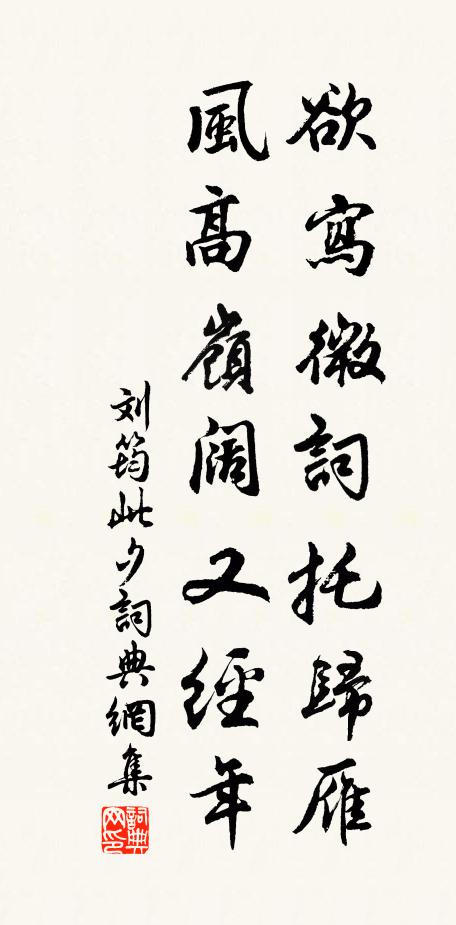 欲寫微詞托歸雁
風高嶺阔又經年
刘筠此夕詞典網集
詞典网印